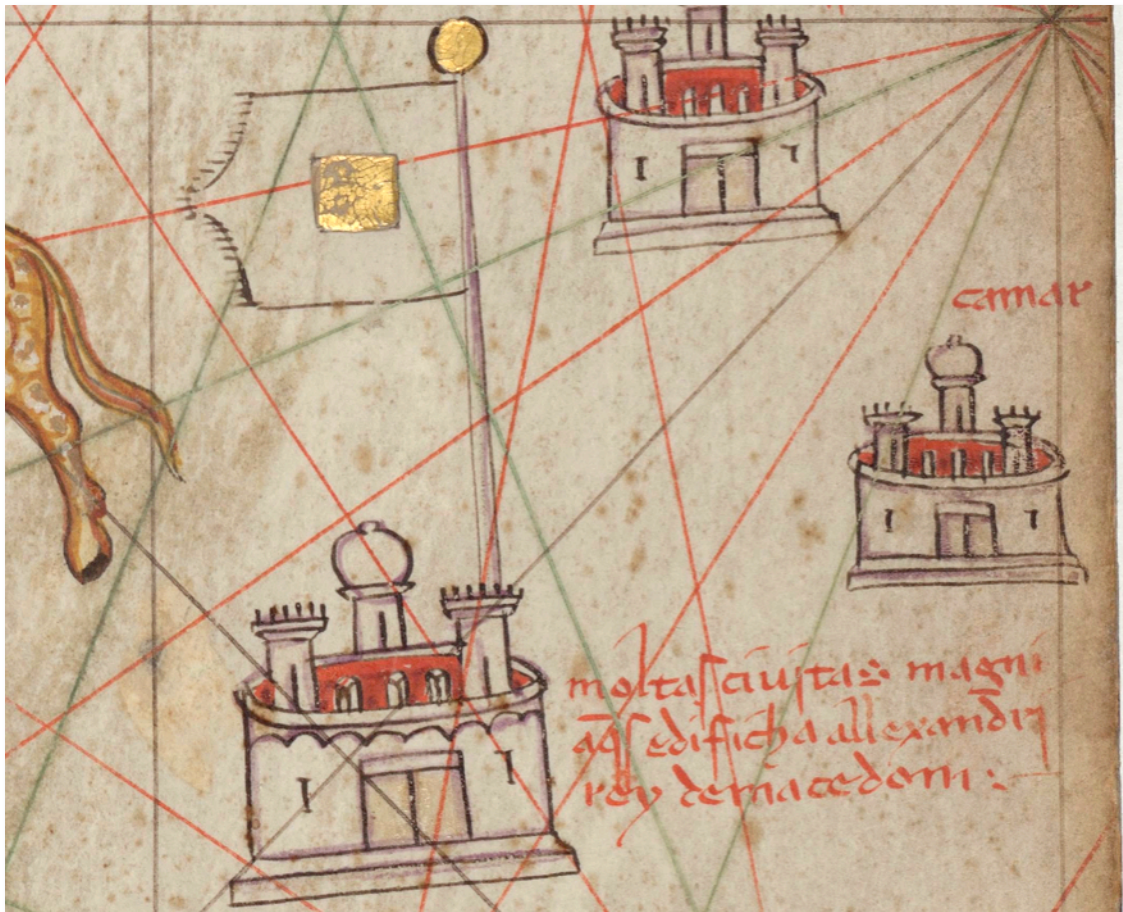 camar
moltas ciustas: magni
aq̃s edificha allexandrj
rey de macedoni: